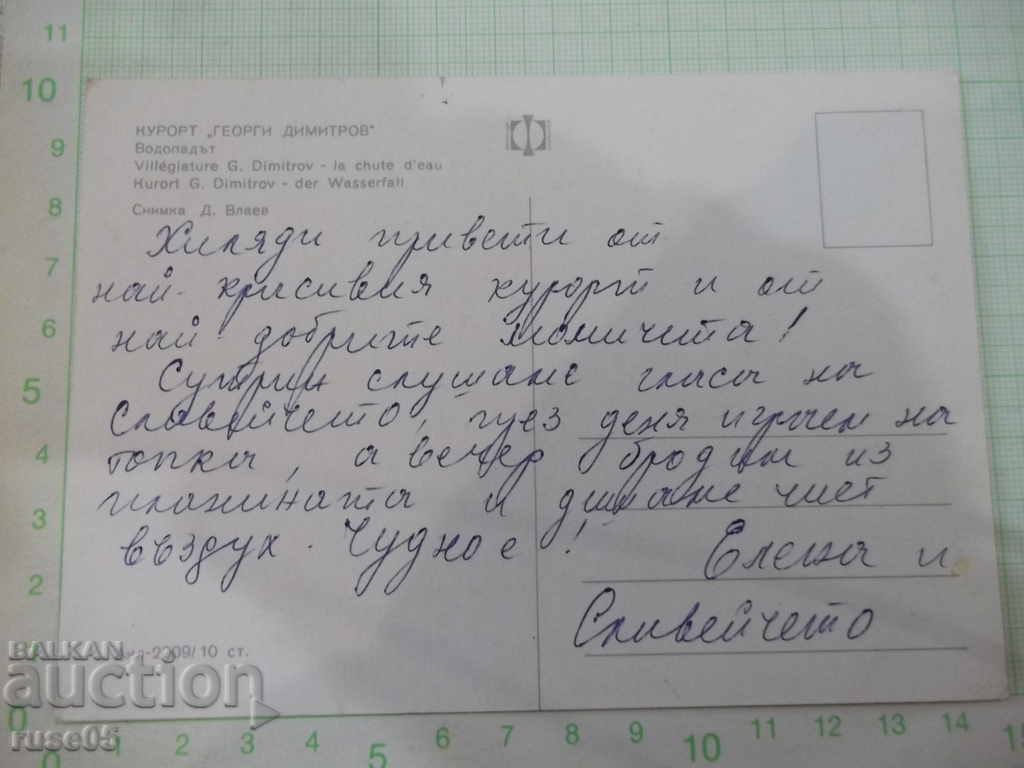 КУРОРТ „ГЕОРГИ ДИМИТРОВ"
Водопадът
Villégiature G. Dimitrov - la chute d'eau
Kurort G. Dimitrov - der Wasserfall
Снимка Д. Влаев
Хиляди привети от
най-красивия курорт и от
най добрите момичета!
Сутрин слушаме гласа на
Славейчето, през деня играем на
топка, а вечер бродим из
планината и дишаме чист
въздух. Чудно е!
Елена и
Славейчето
2909/10 ст.
BALKAN
auction
ruse05
11
10
9
8
7
6
5
4
3
2
0
0
1
2
3
4
5
6
7
8
9
10
11
12
13
14
15